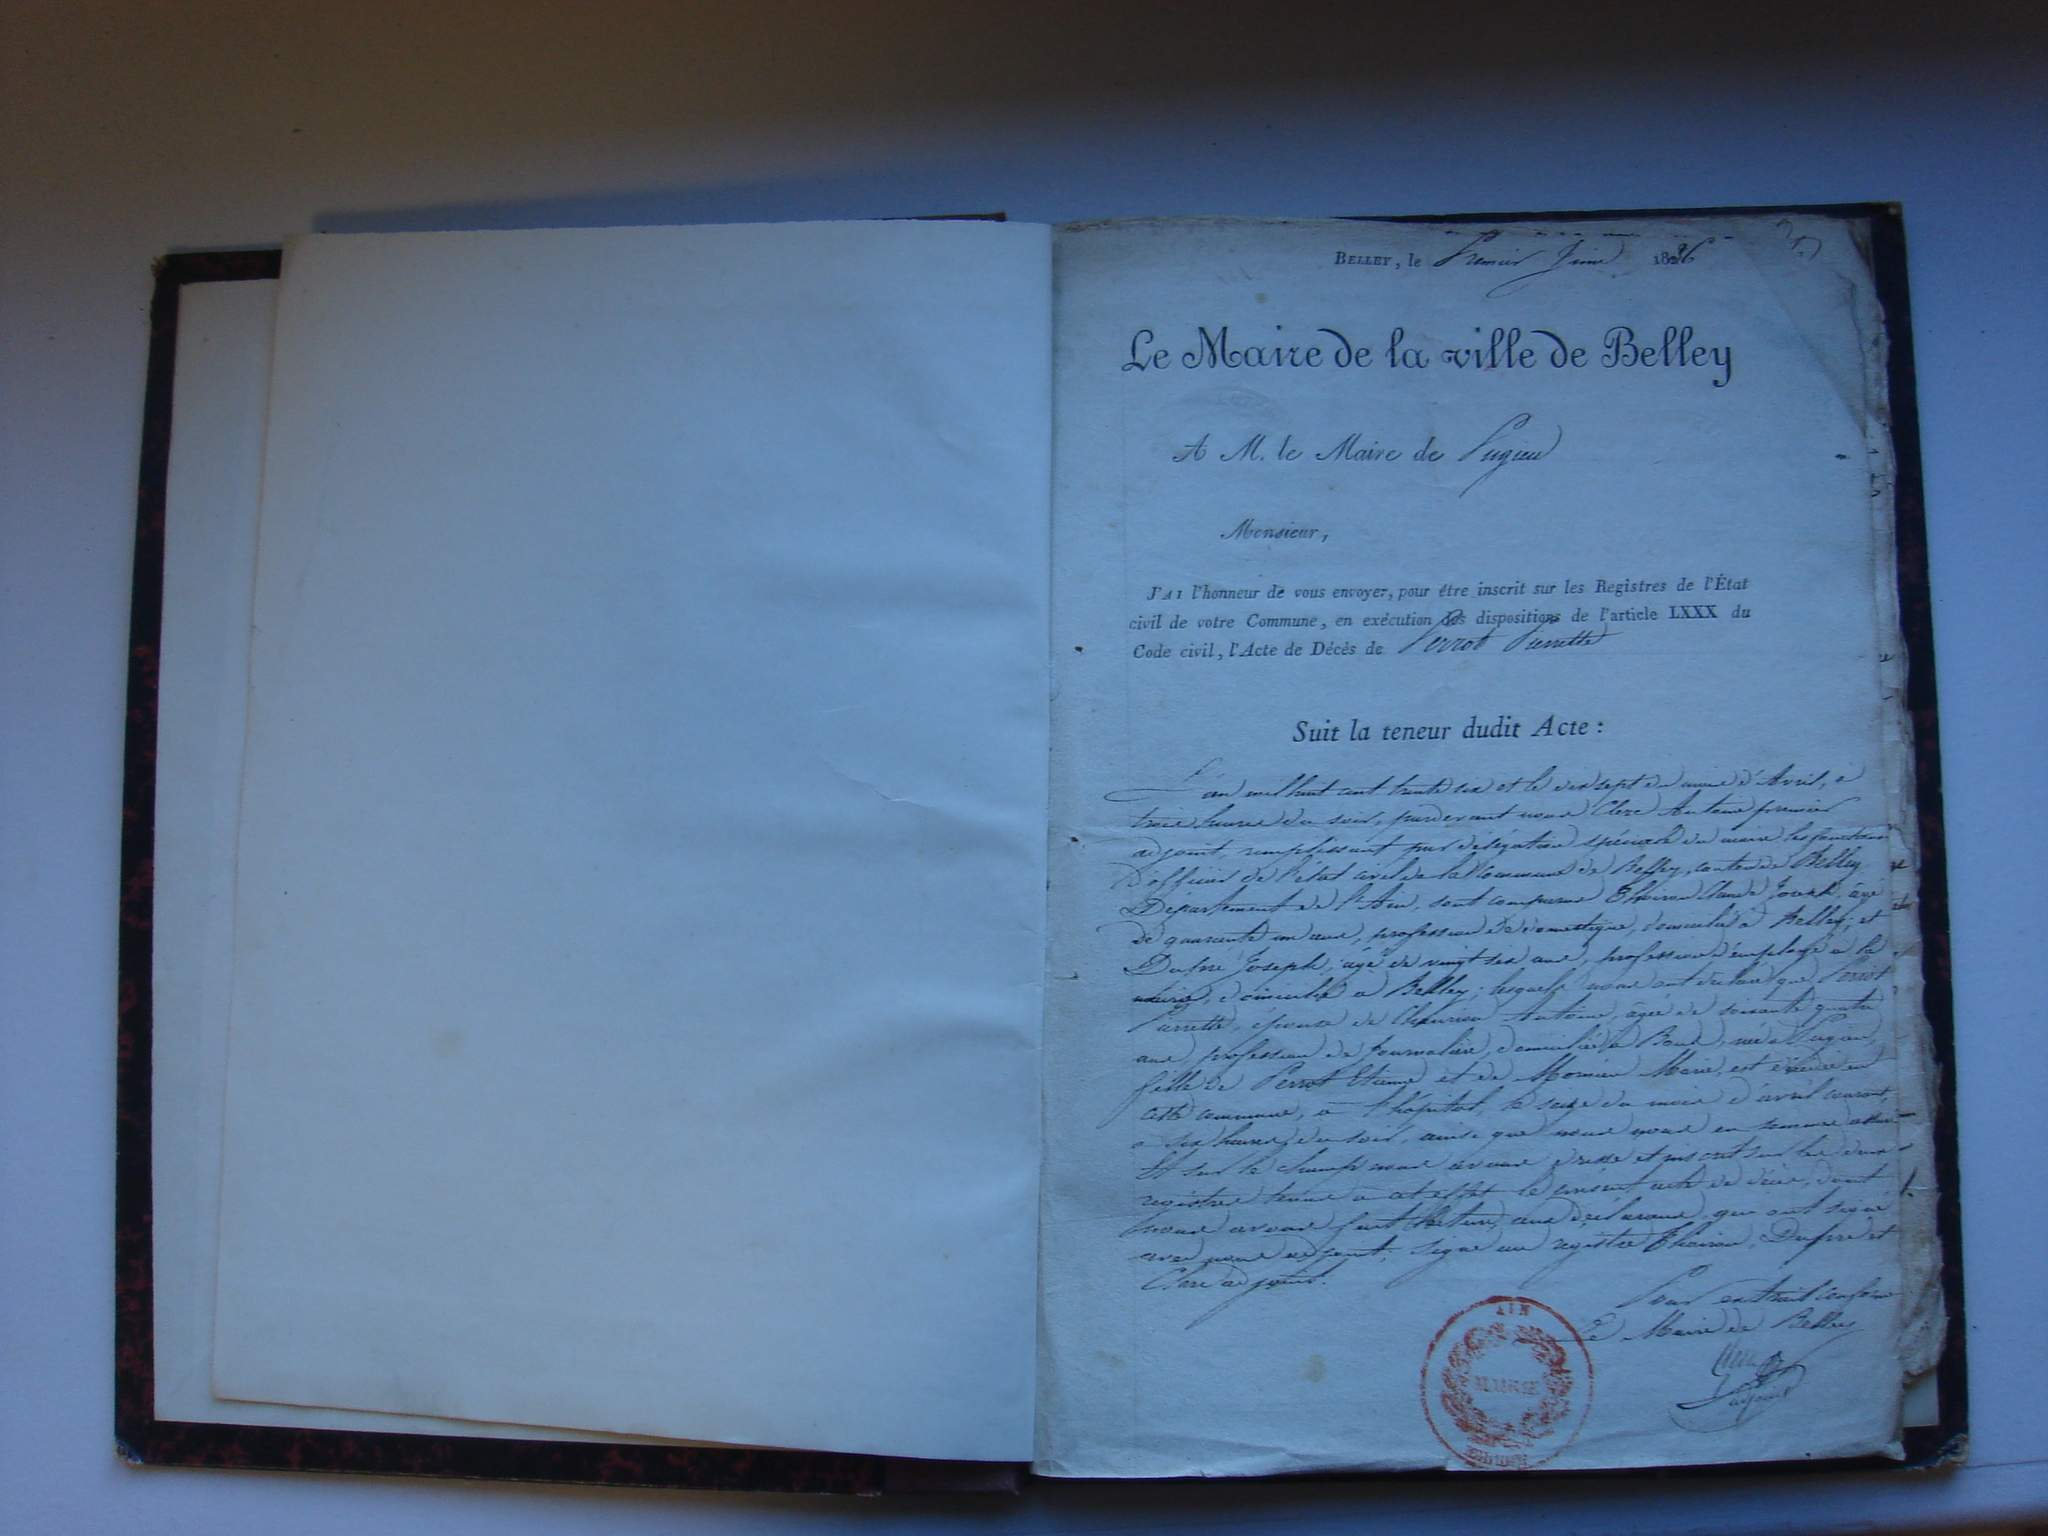 BELLEY, le Premier Juin 1836
Le Maire de la ville de Belley
A M. le Maire de Pugieu
Monsieur,
J'AI l'honneur de vous envoyer, pour être inscrit sur les Registres de l'État
civil de votre Commune, en exécution des dispositions de l'article LXXX du
Code civil, l'Acte de Décès de Perrot Pierrette
Suit la teneur dudit Acte :
L'an mil huit cent trente six et le dix sept du mois d'Avril, à
trois heures du soir, pardevant nous Clerc Antoine premier
adjoint, remplissant par délégation spéciale du maire les fonctions
d'officier de l'état civil de la Commune de Belley, canton de Belley
Département de l'Ain, sont comparus Claude Joseph, âgé
de quarente un ans, profession de domestique, domicilié à Belley; et
Dufré Joseph, agé de vingt six ans, profession d'employé à la
mairie, domicilié à Belley; lesquels nous ont déclaré que Perrot
Pierrette, épouse de Antoine, âgée de soixante quatre
ans, profession de journalière, domiciliée à née à Pugieu,
fille de Perrot Etienne et de Marie, est décédée en
cette commune, à l'hôpital, le seize du mois d'avril courant,
à six heures du soir, ainsi que nous nous en sommes assuré
Et sur le champ nous avons dressé et inscrit sur les deux
registres tenus à cet effet le présent acte de décès, dont
nous avons fait lecture aux déclarans, qui ont signé
avec nous adjoint; signé au registre Dufré et
Clerc adjoint.
Pour extrait conforme
Le Maire de Belley
Clerc
adjoint
AIN
MAIRIE